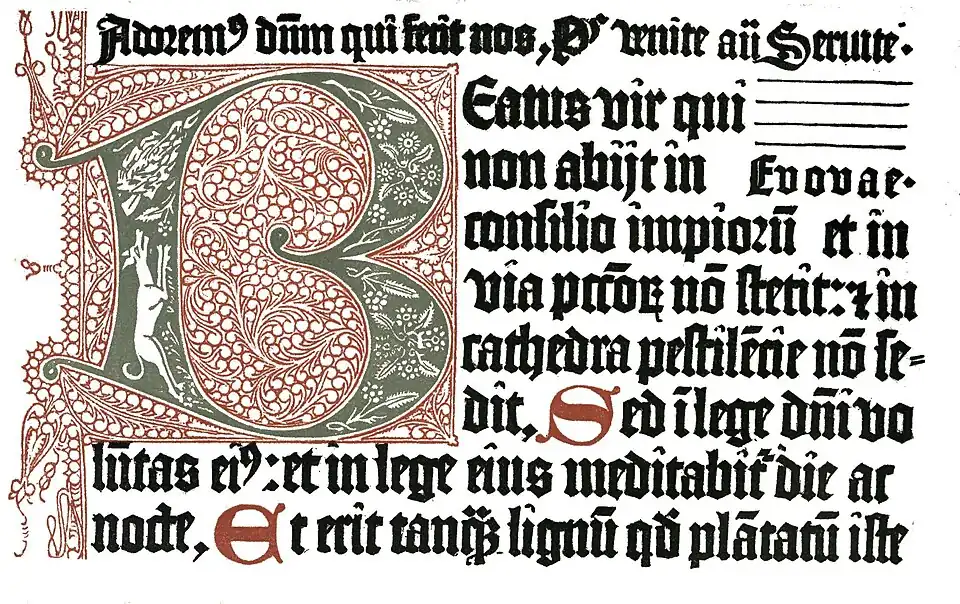 Adoremꝰ dn̄m qui fecit nos, Ps venite añ Seruite.
Beatus vir qui
non abijt in Evovae.
consilio impiorū et in
via pctōꝝ nō stetit: ⁊ in
cathedra pestilēcie nō se=
dit, Sed ī lege dn̄i vo
lūtas eiꝰ: et in lege eius meditabit᷑ die ac
nocte, Et erit tanqꝫ lignū qd̄ plātatū iste